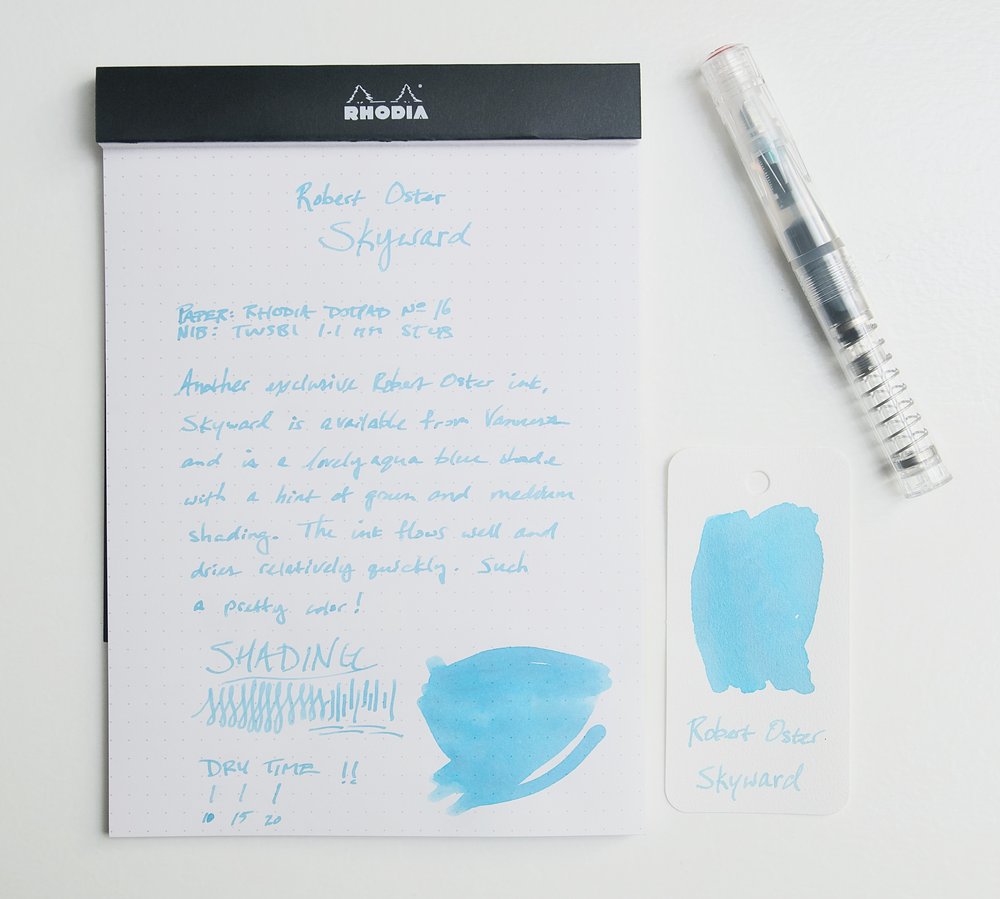 RHODIA
Robert Oster
Skyward
PAPER: RHODIA DOTPAD No 16
NIB: TWSBI 1.1 MM STUB
Another exclusive Robert Oster ink,
Skyward is available from Vanness
and is a lovely aqua blue shade
with a hint of green and medium
shading. The ink flows well and
dries relatively quickly. Such
a pretty color!
SHADING
DRY TIME !!
10 15 20
Robert Oster
Skyward